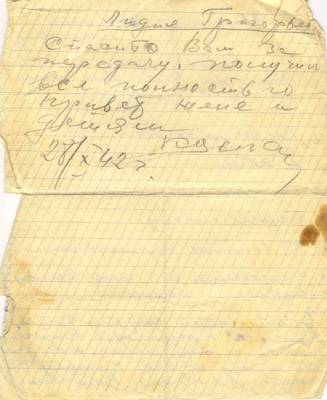 Лидия Григорьевна
Спасибо Вам за
передачу, получил
все полностью
привет жене и
детям
28/X 42 г.